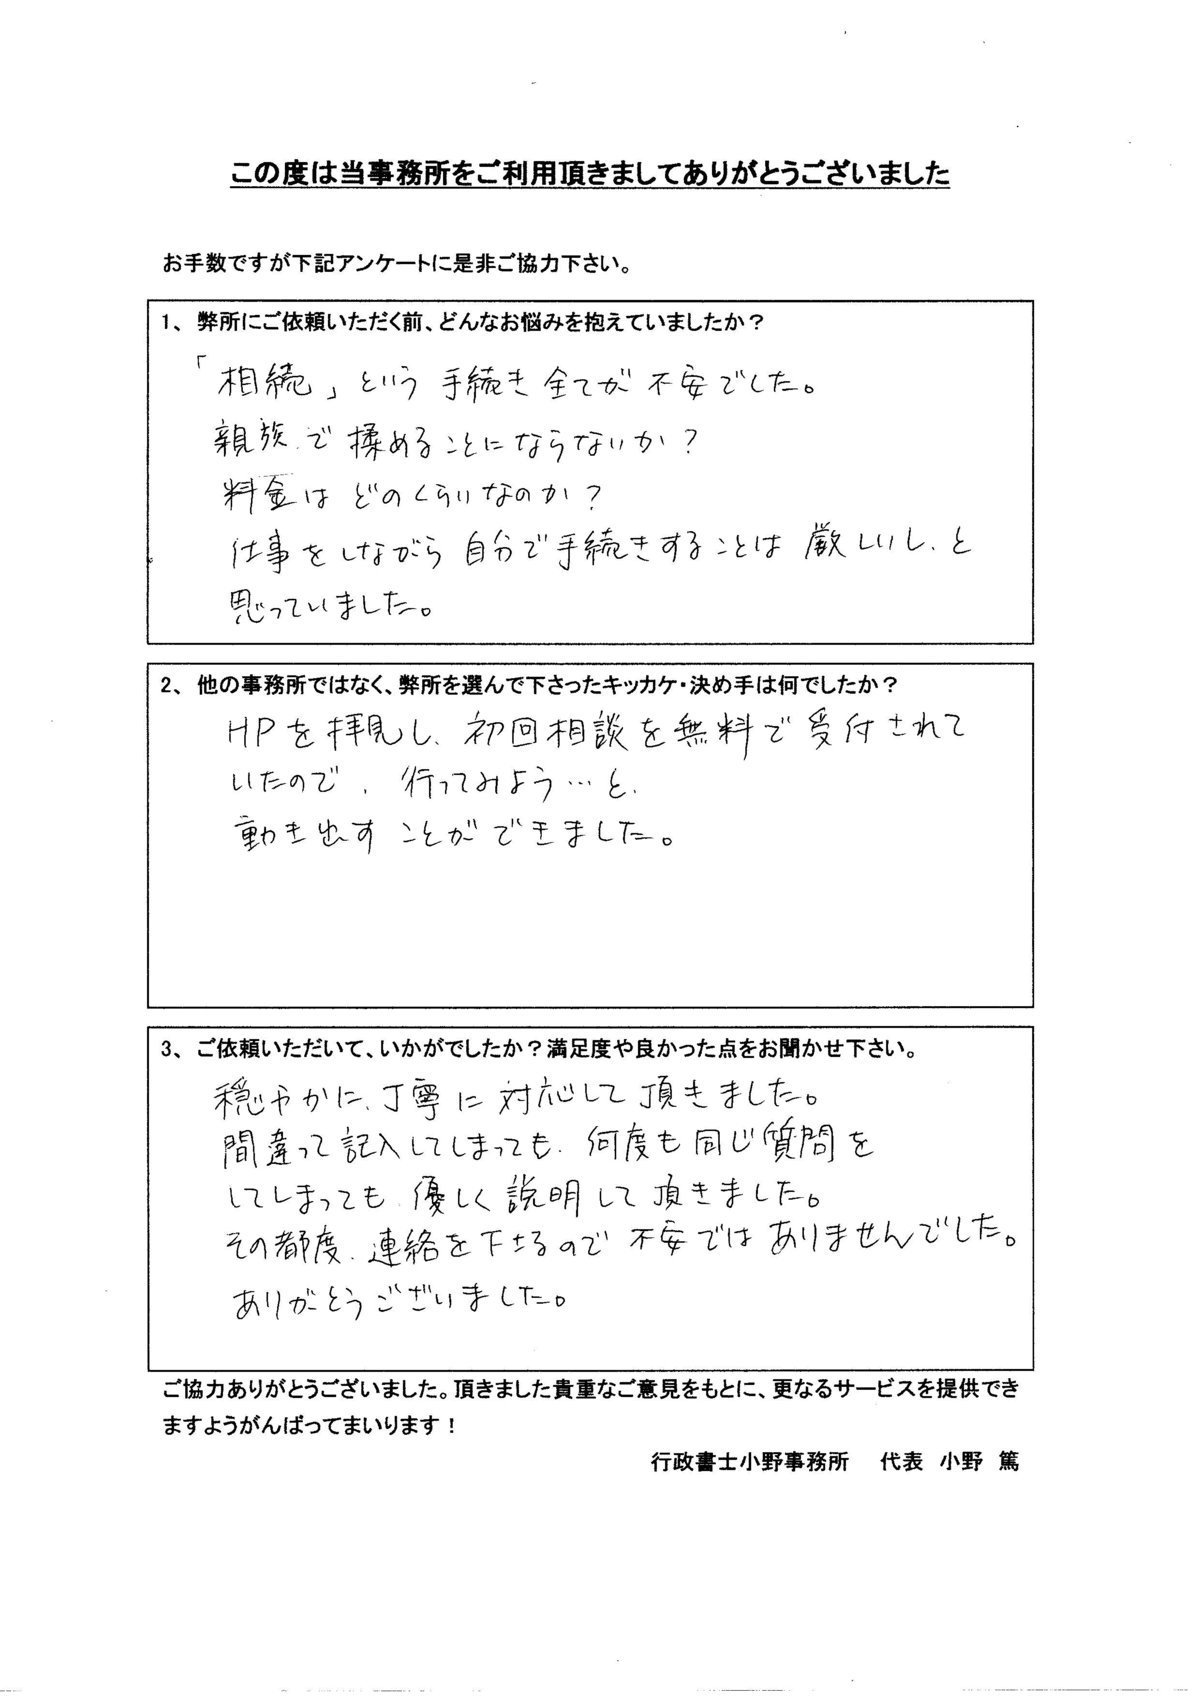 この度は当事務所をご利用頂きましてありがとうございました
お手数ですが下記アンケートに是非ご協力下さい。
1、弊所にご依頼いただく前、どんなお悩みを抱えていましたか？
「相続」という 手続き 全てが 不安でした。
親族で 揉めることにならないか？
料金は どのくらいなのか？
仕事をしながら 自分で手続きすることは 厳しいし、と
思っていました。
2、他の事務所ではなく、弊所を選んで下さったキッカケ・決め手は何でしたか？
HPを拝見し、初回相談を無料で受付されて
いたので、行ってみよう…と、
動き出すことができました。
3、ご依頼いただいて、いかがでしたか？満足度や良かった点をお聞かせ下さい。
穏やかに、丁寧に 対応して 頂きました。
間違って記入してしまっても、何度も同じ質問を
してしまっても 優しく説明して頂きました。
その都度、連絡を下さるので 不安ではありませんでした。
ありがとうございました。
ご協力ありがとうございました。頂きました貴重なご意見をもとに、更なるサービスを提供でき
ますようがんばってまいります！
行政書士小野事務所　代表　小野　篤